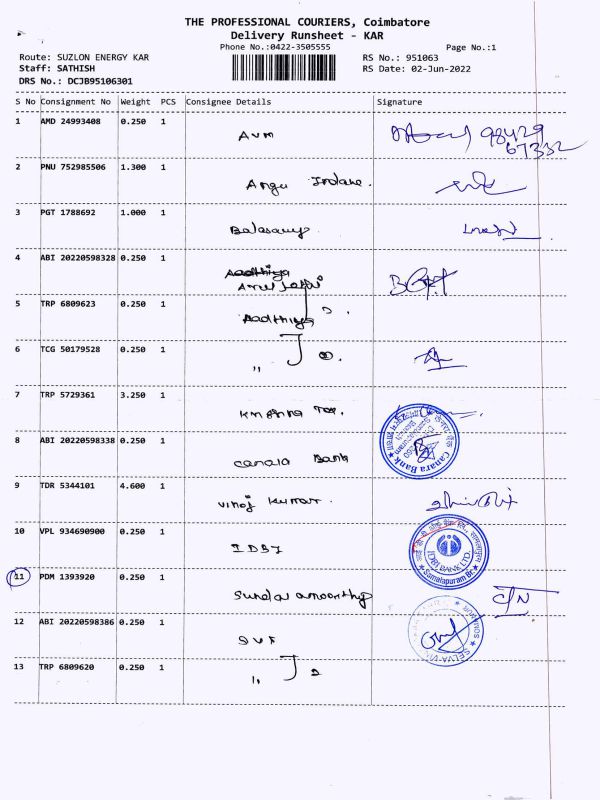 THE PROFESSIONAL COURIERS, Coimbatore
Delivery Runsheet - KAR
Phone No.:0422-3505555 Page No.:1
Route: SUZLON ENERGY KAR RS No.: 951063
Staff: SATHISH RS Date: 02-Jun-2022
DRS No.: DCJB95106301
S No Consignment No Weight PCS Consignee Details Signature
1 AMD 24993408 0.250 1 AVM 98429
67332
2 PNU 752985506 1.300 1
3 PGT 1788692 1.000 1
4 ABI 20220598328 0.250 1 Aadhiya
5 TRP 6809623 0.250 1 Aadhiya
6 TCG 50179528 0.250 1 ,,
7 TRP 5729361 3.250 1
8 ABI 20220598338 0.250 1 canara Bank Canara Bank
9 TDR 5344101 4.600 1 vinoj kumar.
10 VPL 934690900 0.250 1 IDBI IDBI BANK LTD.
Somalapuram Br.
11 PDM 1393920 0.250 1 Sundaramoorthy C/N
12 ABI 20220598386 0.250 1
13 TRP 6809620 0.250 1 ,,